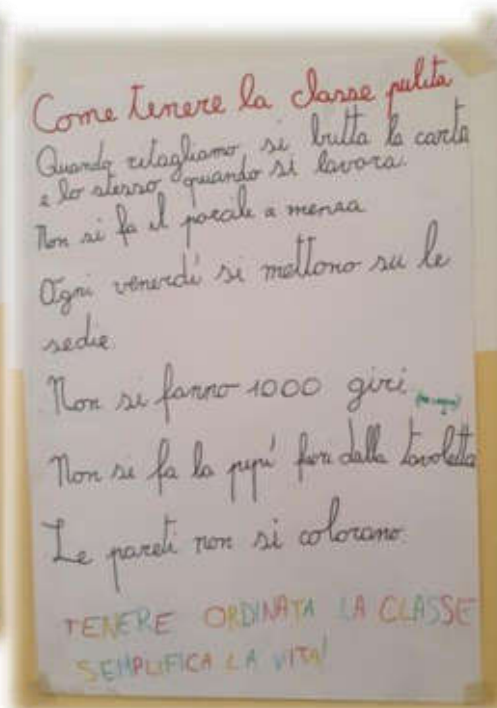 Come tenere la classe pulita
Quando ritagliamo si butta la carta
e lo stesso quando si lavora.
Non si fa il porcile a mensa
Ogni venerdì si mettono su le
sedie
Non si fanno 1000 giri
Non si fa la pipì fuori dalla tavoletta
Le pareti non si colorano
TENERE ORDINATA LA CLASSE
SEMPLIFICA LA VITA!